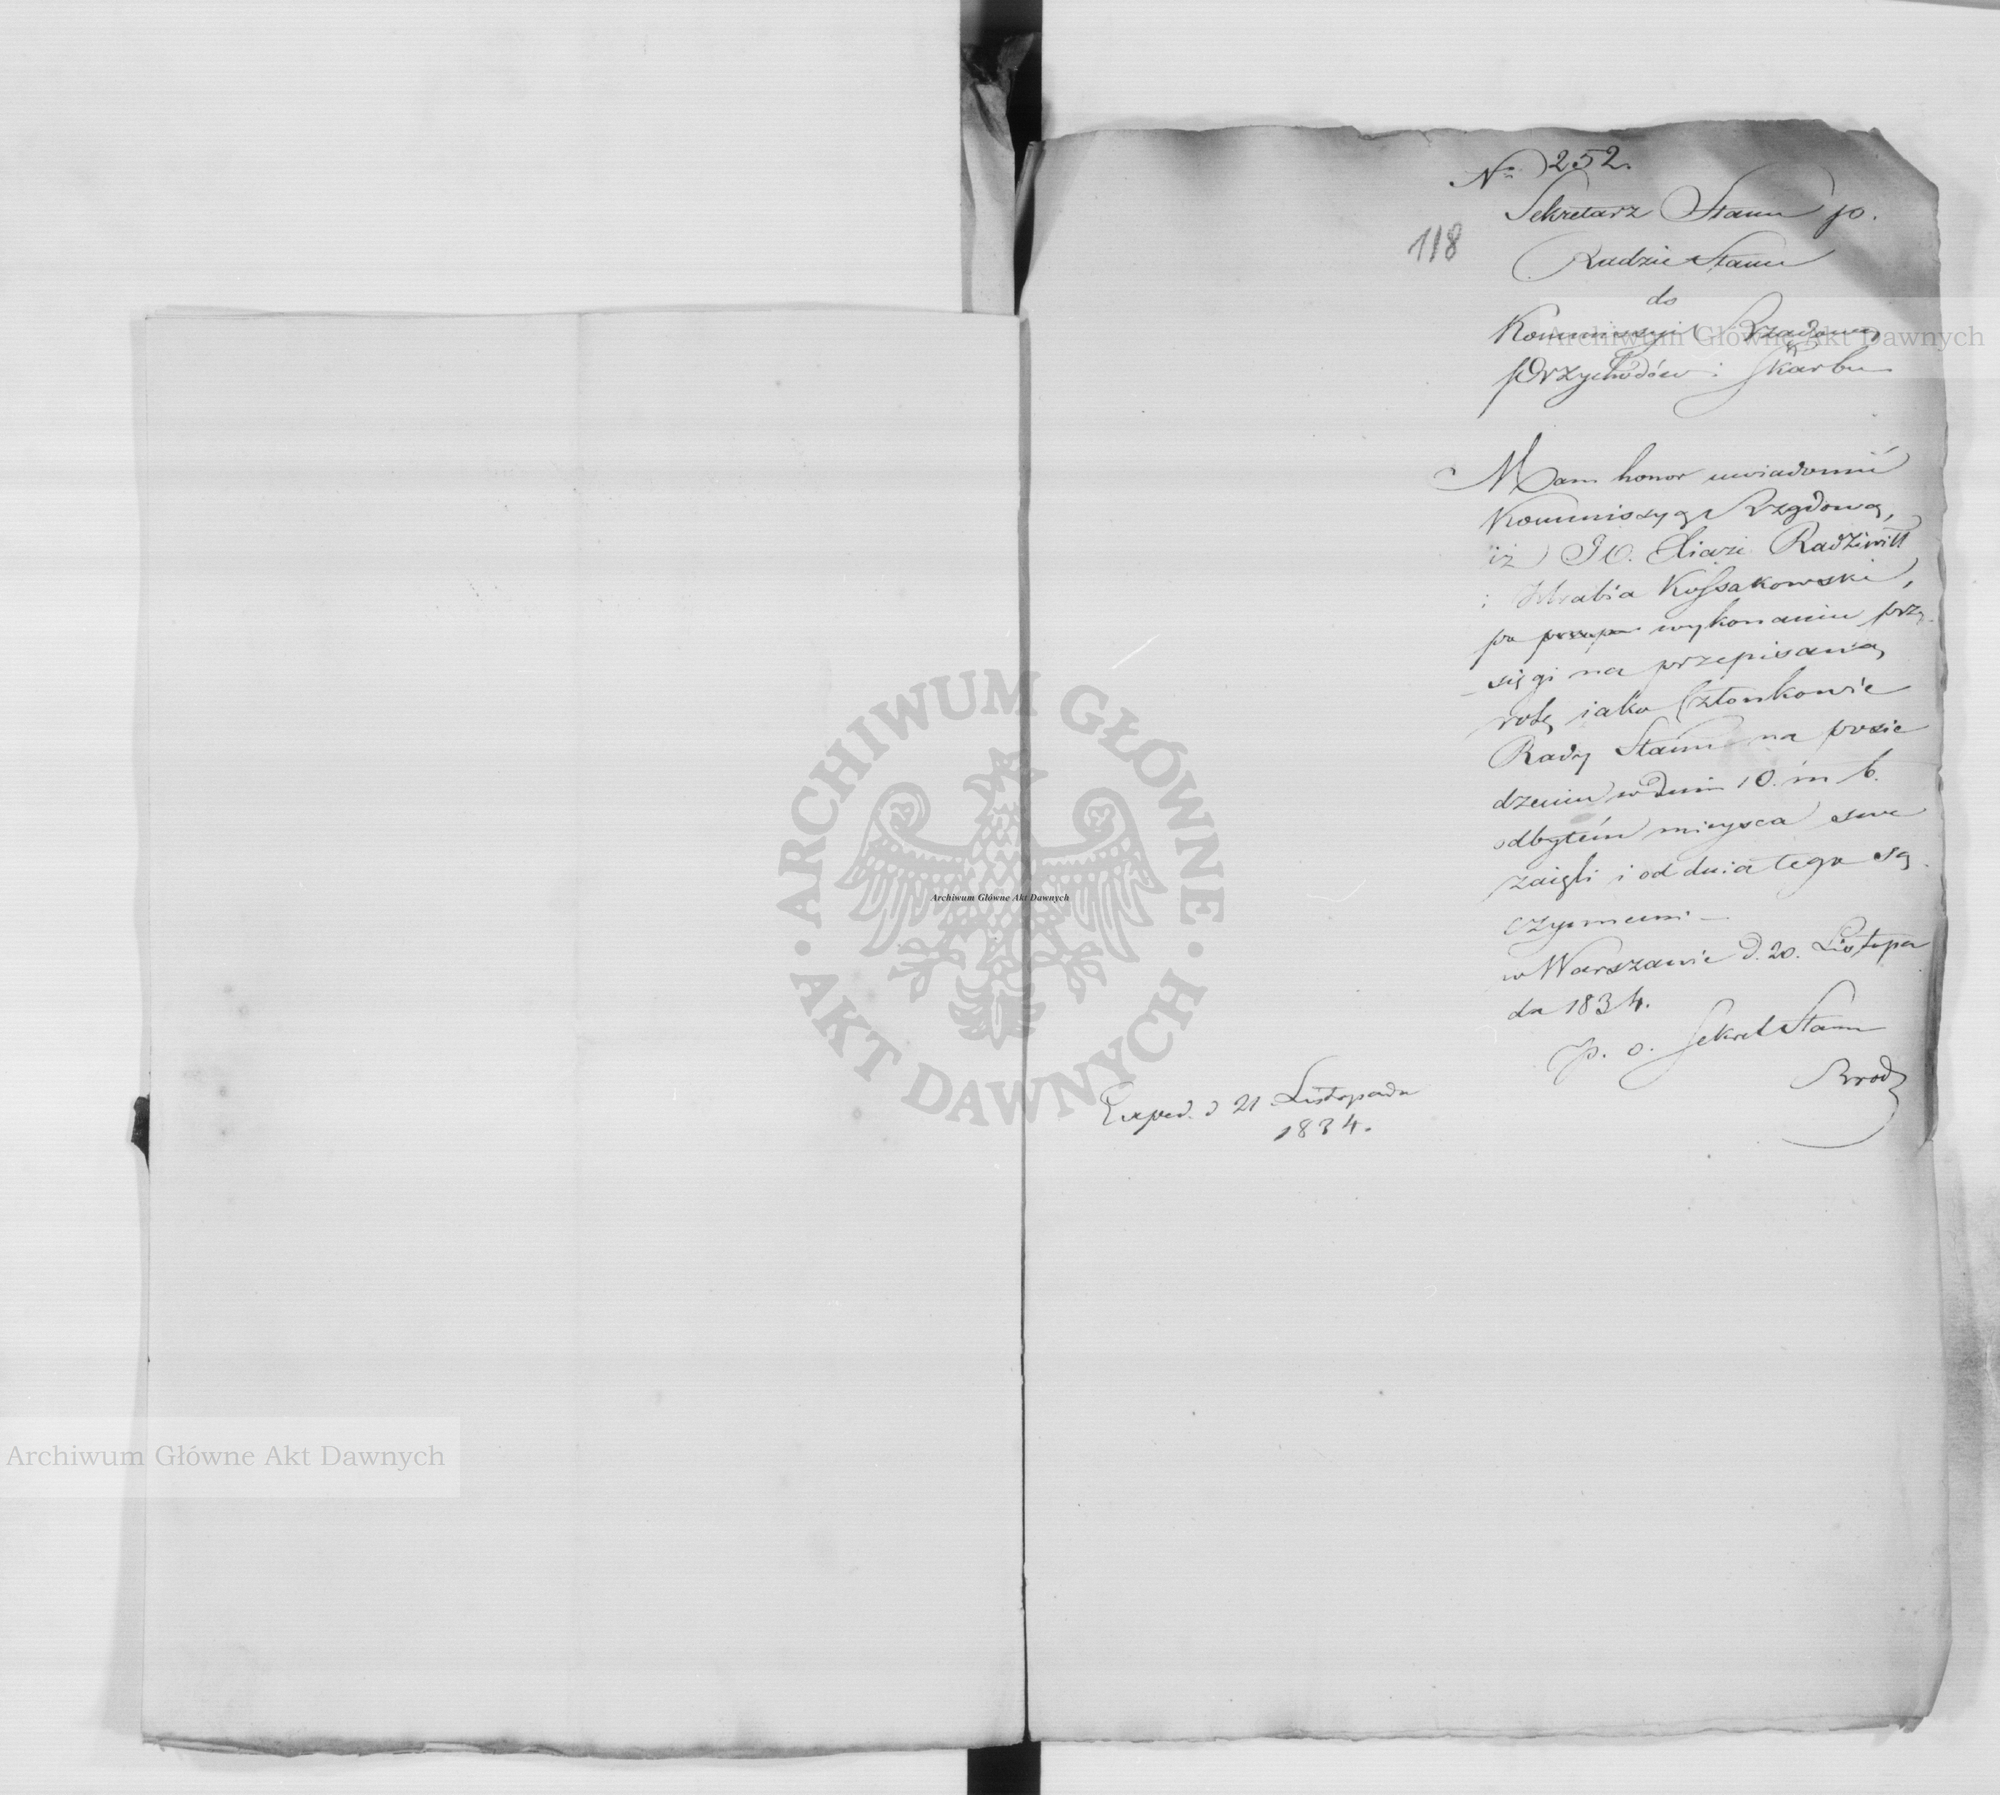 Nr 252.
118
Sekretarz Stanu p.
Radzie Stanu
do
Kommissyi Rządowey
Przychodów i Skarbu
Mam honor uwiadomić
Kommissyą Rządową,
iż JO. Xiąże Radziwiłł
i Hrabia Kossakowski,
po wykonaniu przy-
sięgi na przepisaną
rotę iako Członkowie
Rady Stanu na posie
dzeniu w dniu 10. m b.
odbytém mieysca swe
zaięli i od dnia tego są
czynnemi —
w Warszawie d. 20. Listopa
da 1834.
p. o. Sekret Stanu
Exped. d 21 Listopada
1834.
Archiwum Główne Akt Dawnych
ARCHIWUM GŁÓWNE
· AKT DAWNYCH ·
Archiwum Główne Akt Dawnych
Archiwum Główne Akt Dawnych